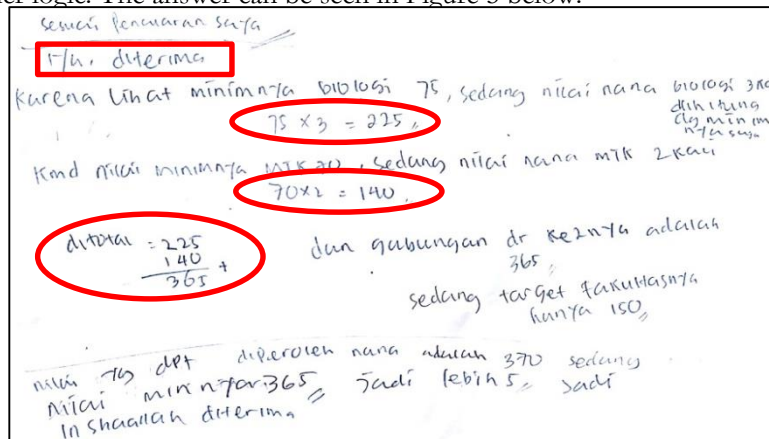 er logic. The answer can be seen in Figure 5 below.
sesuai Penalaran saya
diterima
Karena lihat minimnya biologi 75, sedang nilai nana biologi 3
dihitung
dg minim
nya saja
75 x 3 = 225
Kmd nilai minimnya MTK 70, sedang nilai nana MTK 2 kali
70x2 = 140
ditotal = 225
140
365 +
dan gabungan dr ke2nya adalah
365
sedang target fakultasnya
hanya 150
nilai yg dpt diperoleh nana adalah 370 sedang
nilai minnya 365 Jadi lebih 5, Jadi
Inshaallah diterima